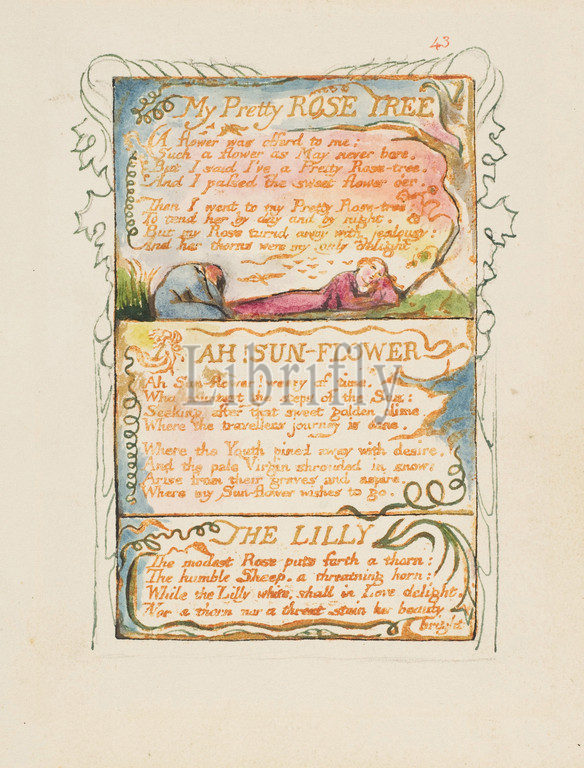 43
My Pretty ROSE TREE
A flower was offerd to me:
Such a flower as May never bore.
But I said I've a Pretty Rose-tree,
And I passed the sweet flower oer.
Then I went to my Pretty Rose-tree:
To tend her by day and by night.
But my Rose turnd away with jealousy:
And her thorns were my only delight.
AH! SUN-FLOWER
Ah Sun-flower! weary of time,
Who countest the steps of the Sun:
Seeking after that sweet golden clime
Where the travellers journey is done.
Where the Youth pined away with desire,
And the pale Virgin shrouded in snow:
Arise from their graves and aspire,
Where my Sun-flower wishes to go.
THE LILLY
The modest Rose puts forth a thorn:
The humble Sheep, a threatning horn:
While the Lilly white, shall in Love delight,
Nor a thorn nor a threat stain her beauty
bright
Librifly